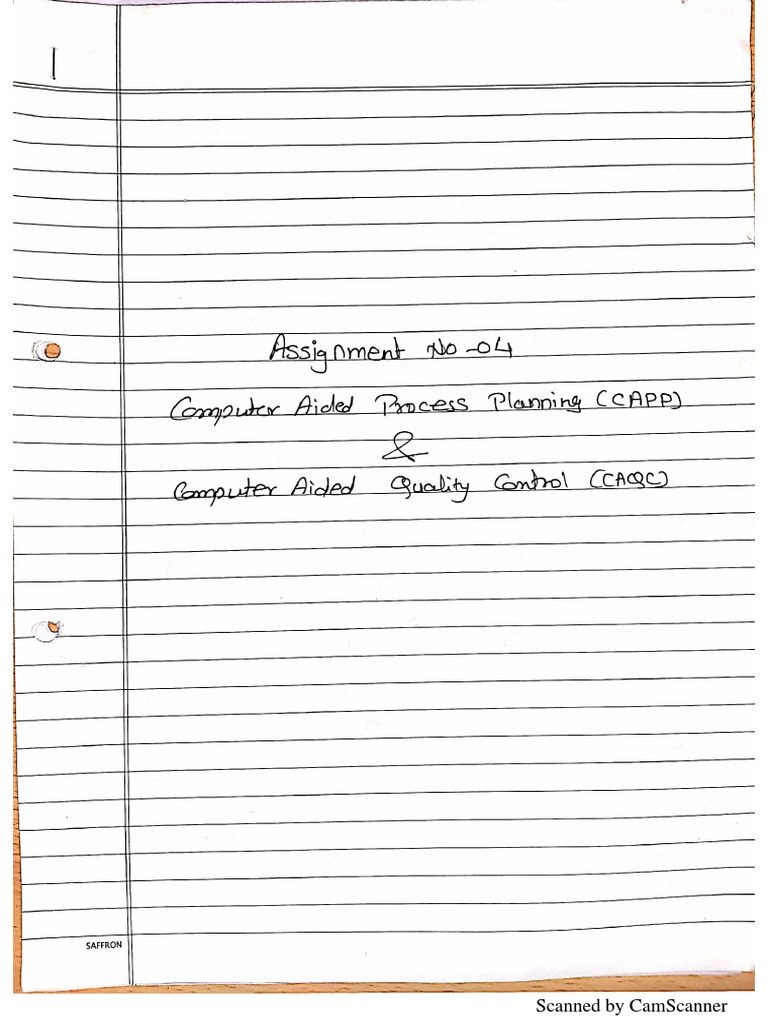 1
Assignment No-04
Computer Aided Process Planning (CAPP)
&
Computer Aided Quality Control (CAQC)
SAFFRON
Scanned by CamScanner